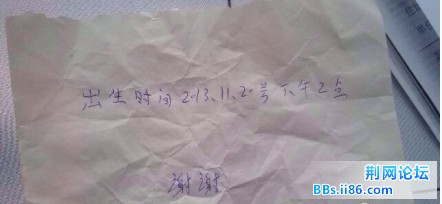 出生时间2013.11.20号下午2点
谢谢
荆网论坛
BBs.ii86.com